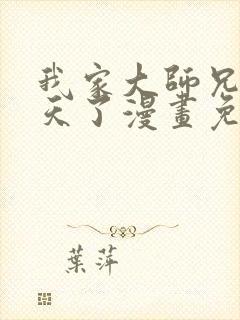 我家大師兄
天了漫畫免
葉萍